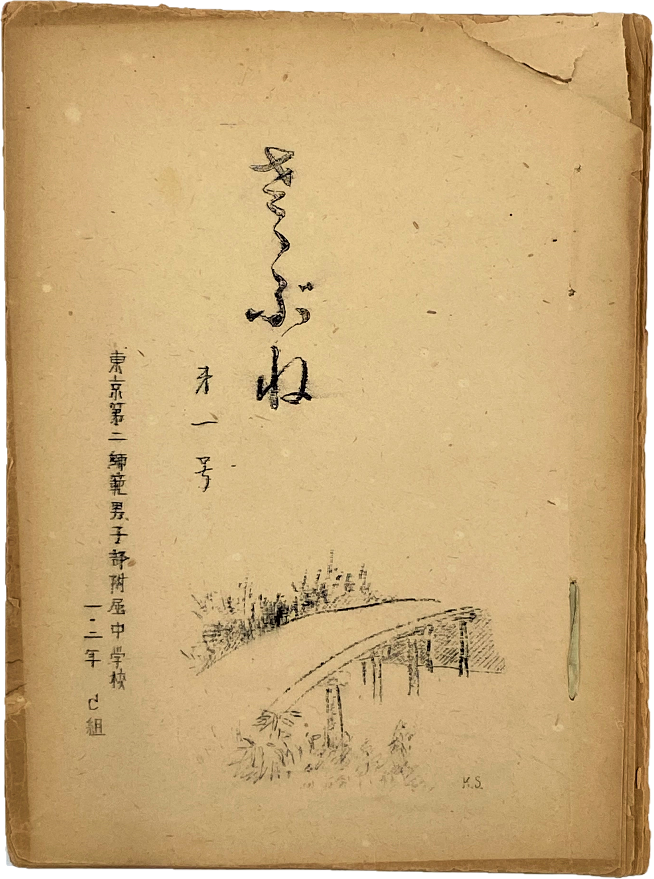 さゝぶね
才一号
東京第二師範男子部附属中学校
一・二年 C組
K.S.